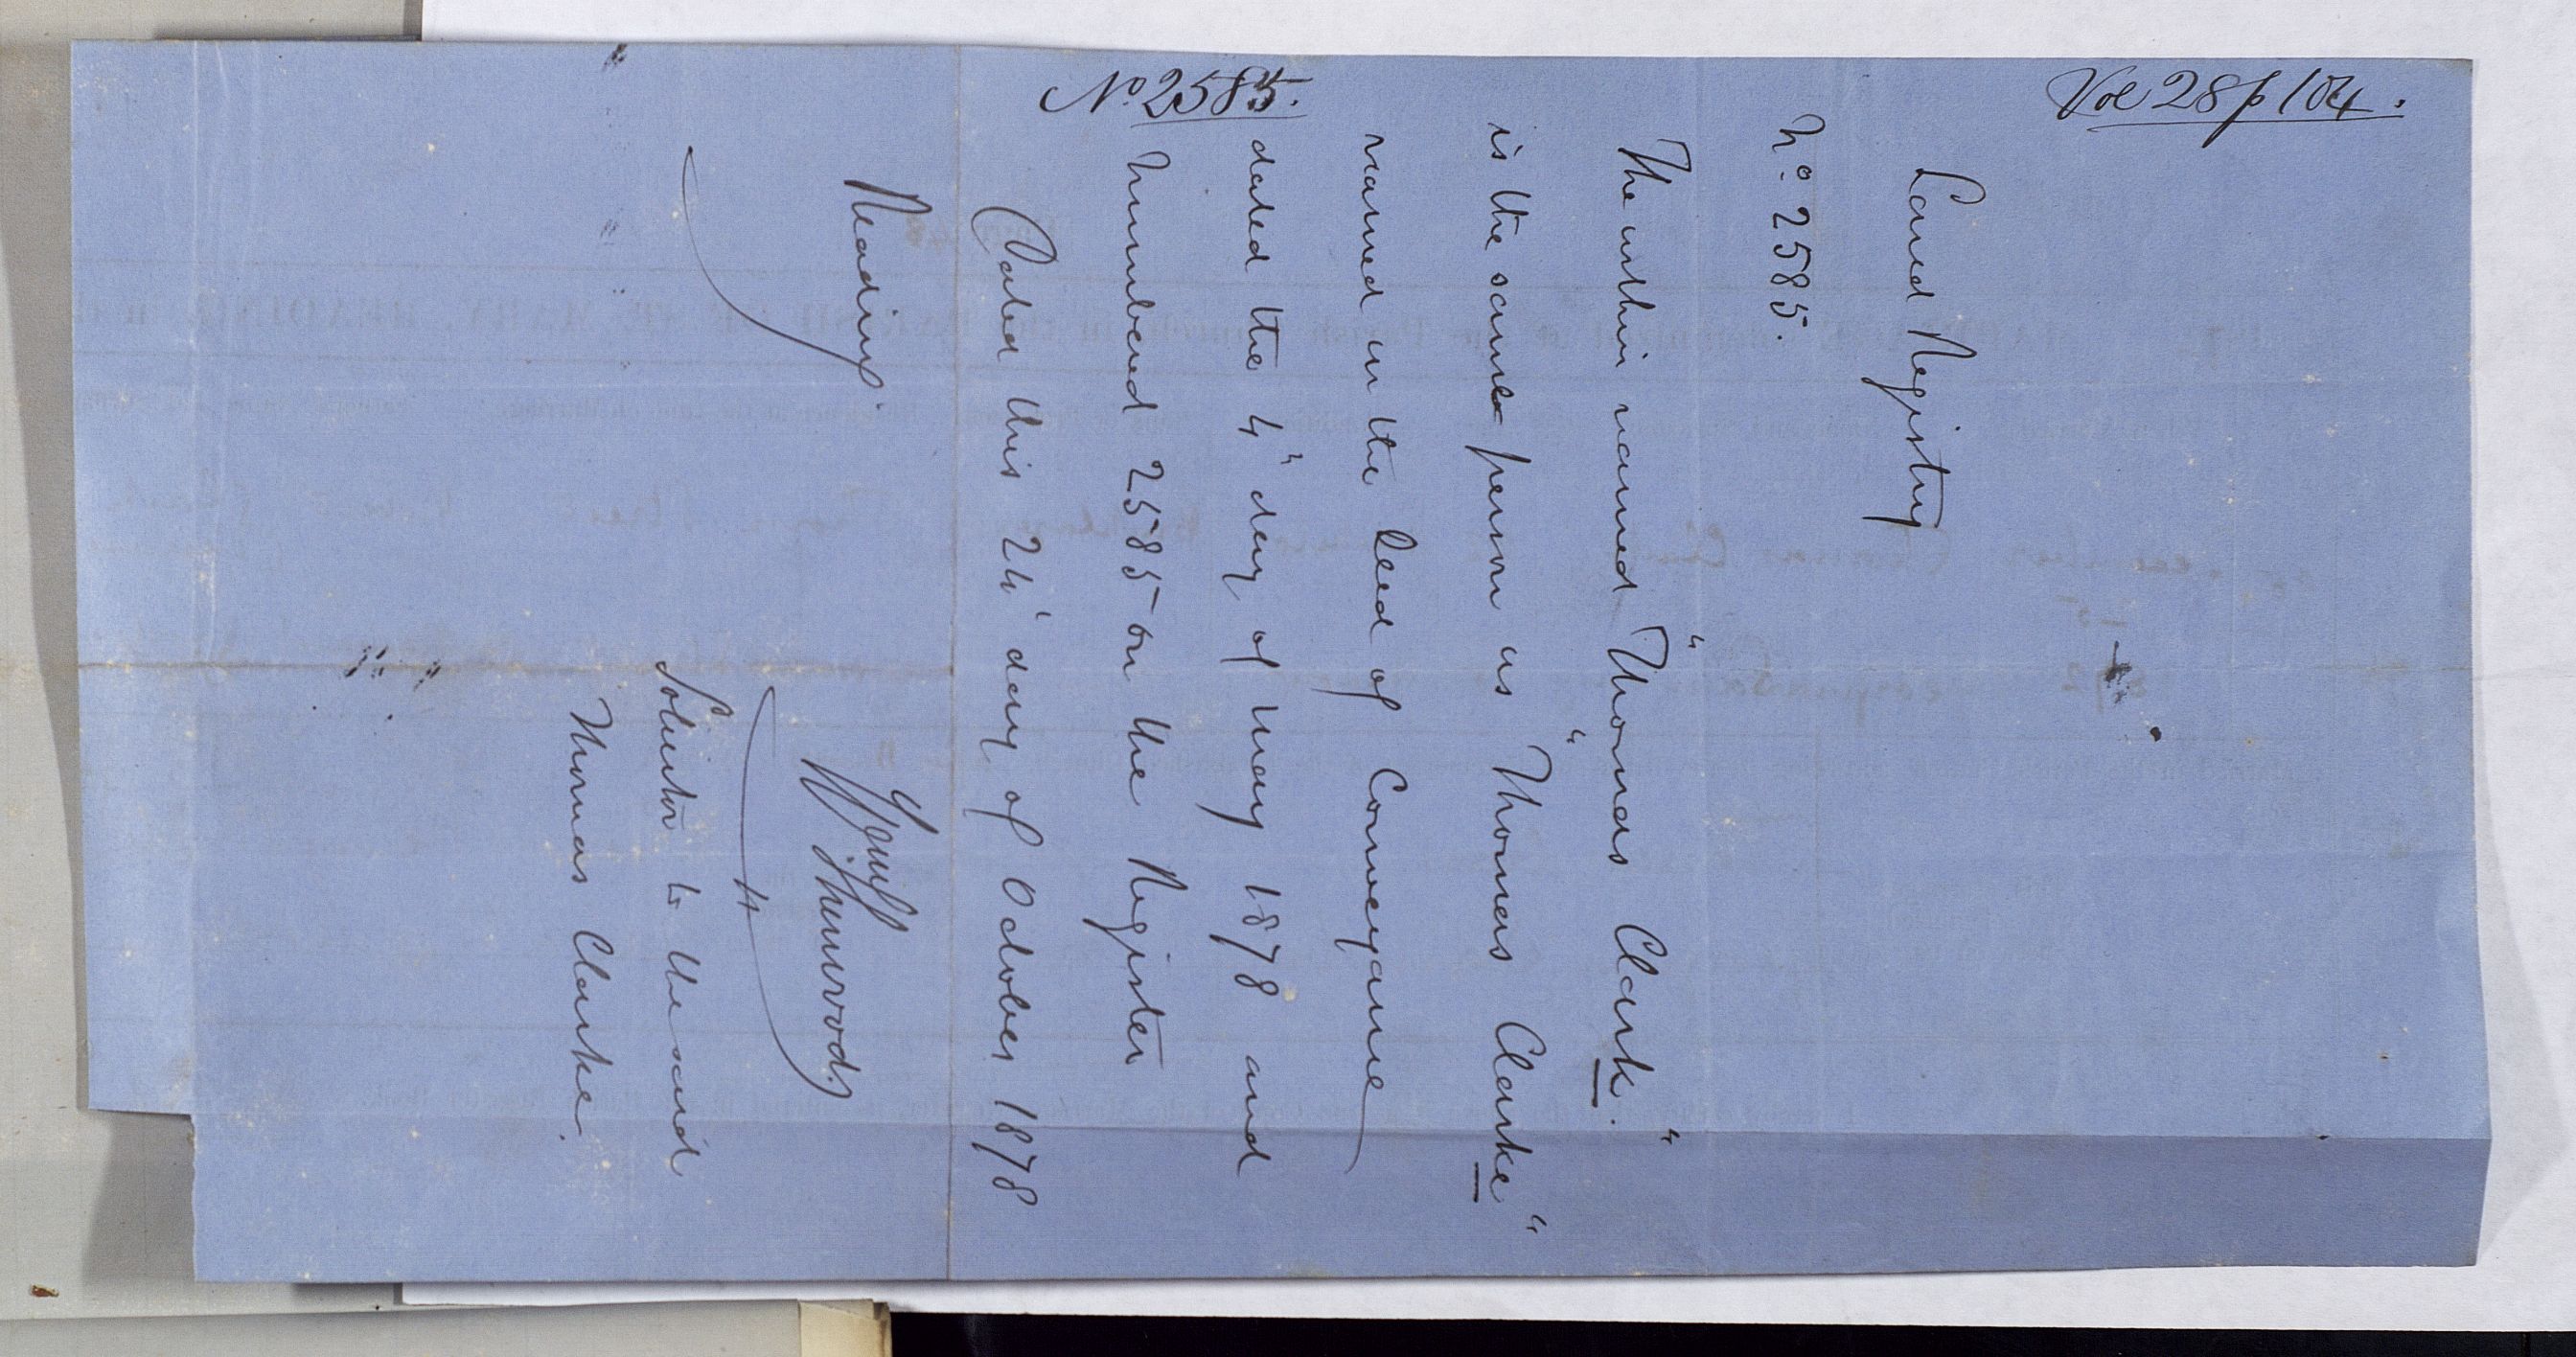 Vol 28 p 104.
No. 2585.
Land Registry
No. 2585.
The within named "Thomas Clark."
is the same person as "Thomas Clarke"
named in the Deed of Conveyance
dated the 4" day of May 1878 and
numbered 2585 on the Register
Dated this 24' day of October 1878
Reading
Solicitor to the said
Thomas Clarke.